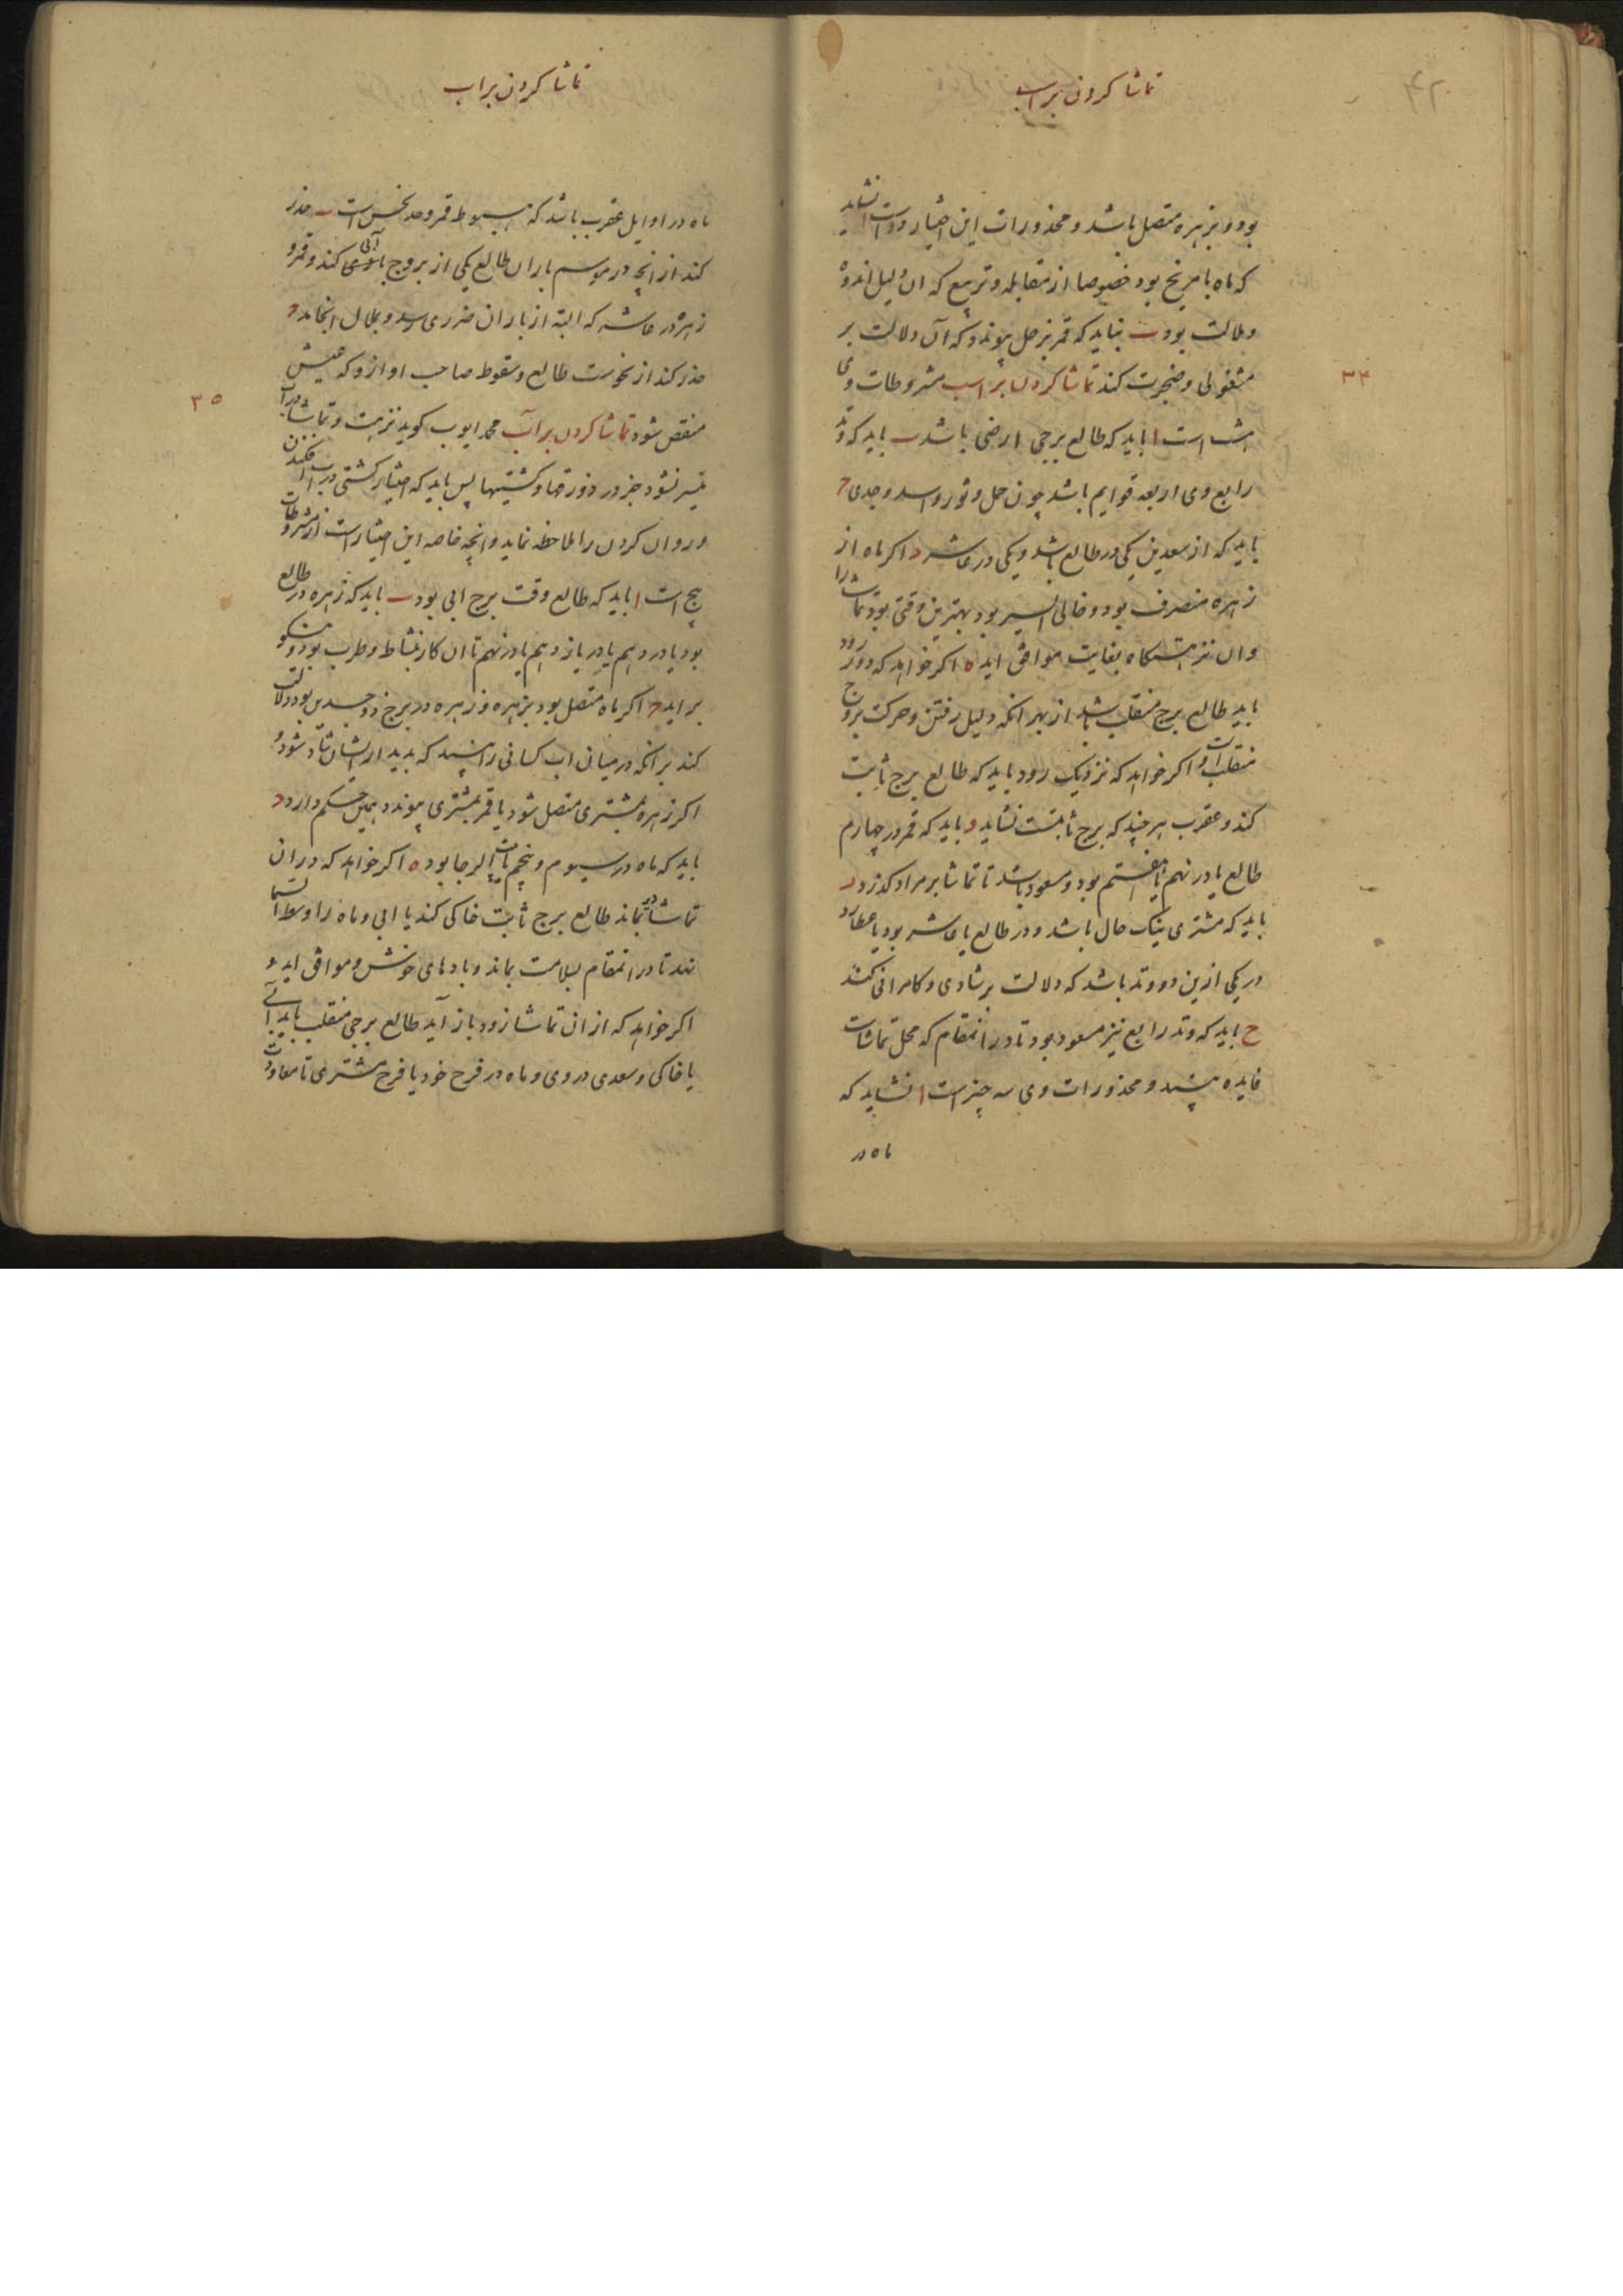 تماشا کردن بر اسب
۴۲
بود و بزهره متصل باشد و محذورات این اختیار دو است ا نشاید
که ماه با مریخ بود خصوصا از مقابله و تربیع که ان دلیل اندوه
و ملالت بود ب نباید که قمر بزحل پیوندد که آن دلالت بر
مشغولی و ضجرت کند تماشا کردن بر اسب مشروطات وی
۳۴
هشت است ا باید که طالع برجی ارضی باشد ب باید که وتد
رابع وی اربعه قوایم باشد چون حمل و ثور و اسد و جدی ج
باید که از سعدین یکی در طالع باشد و یکی در عاشر د اکر ماه از
زهره منصرف بود و خالی السیر بود بهترین وقتی بود تماشا را
وان نزهتکاه بغایت موافق اید ه اکر خواهد که دور رود
باید طالع برج منقلب باشد از بهر انکه دلیل رفتن و حرکت بروج
منقلب است و اکر خواهد که نزدیک رود باید که طالع برج ثابت
کند و عقرب هر چند که برج ثابتست نشاید و باید که قمر در چهارم
طالع یا در نهم یا هفتم بود و مسعود باشد تا تماشا بر مراد کذرد ز
باید که مشتری نیک حال باشد و در طالع یا عاشر بود یا عطارد
در یکی ازین دو وتد باشد که دلالت بر شادی و کامرانی کند
ح باید که وتد رابع نیز مسعود بود تا در انمقام که محل تماشاست
فایده بیند و محذورات وی سه چیز است ا نشاید که
ماه در
تماشا کردن بر اب
ماه در اوایل عقرب باشد که هبوط قمر و حد نحس است ب حذر
کند از انچه در موسم باران طالع یکی از بروج آبی کند و قمر و
زهره در عاشر که البته از باران ضرری رسد و بملال انجامد ج
حذر کند از نحوست طالع و سقوط صاحب او ازو که عیش
منقص شود تماشا کردن بر آب محمد ایوب کوید نزهت و تماشا در آب
۳۵
میسر نشود جز در زورقها و کشتیها پس باید که اختیار کشتی در اب افکندن
و روان کردن را ملاحظه نماید و انچه خاصه این اختیار است از مشروطات
پنج است ا باید که طالع وقت برج ابی بود ب باید که زهره در طالع
بود یا در دهم یا در یازدهم یا در نهم تا ان کار بنشاط و طرب بود و نیکو
براید ج اکر ماه متصل بود بزهره و زهره در برج ذو جسدین بود دلالت
کند بر انکه در میان اب کسانی را بیند که بدیدار ایشان شاد شود و
اکر زهره بمشتری متصل شود یا قمر بمشتری پیوندد همین حکم دارد د
باید که ماه در سیوم و پنجم بیت الرجا بود ه اکر خواهد که در ان
تماشا دیر بماند طالع برج ثابت خاکی کند یا ابی و ماه را وسط السما
نهد تا در انمقام بسلامت بماند و بادهای خوش و موافق اید و
اکر خواهد که از ان تماشا زود باز آید طالع برجی منقلب باید آبی
یا خاکی و سعدی در وی و ماه در فرح خود یا فرح مشتری تا معاودت